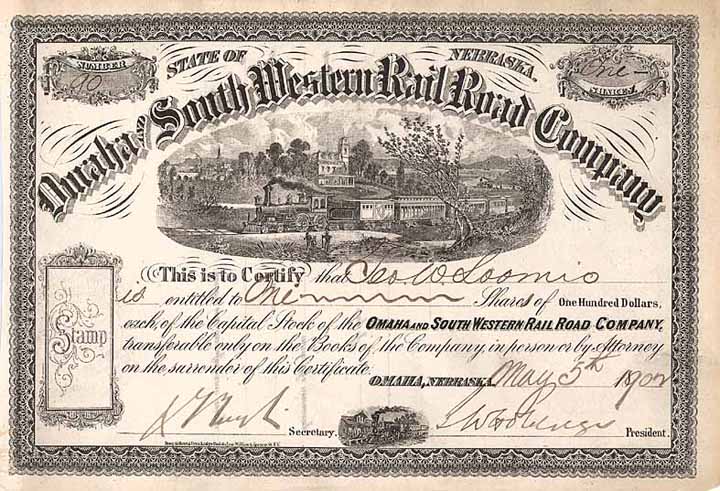 STATE OF NEBRASKA.
NUMBER
10
One
SHARES.
Omaha and South Western Rail Road Company
This is to Certify that Geo W. Loomis
is entitled to One Shares of ONE HUNDRED DOLLARS,
each, of the Capital Stock of the OMAHA AND SOUTH WESTERN RAIL ROAD COMPANY,
transferable only on the Books of the Company, in person or by Attorney
on the surrender of this Certificate.
Stamp
OMAHA, NEBRASKA May 5th 1902
Secretary.
President.